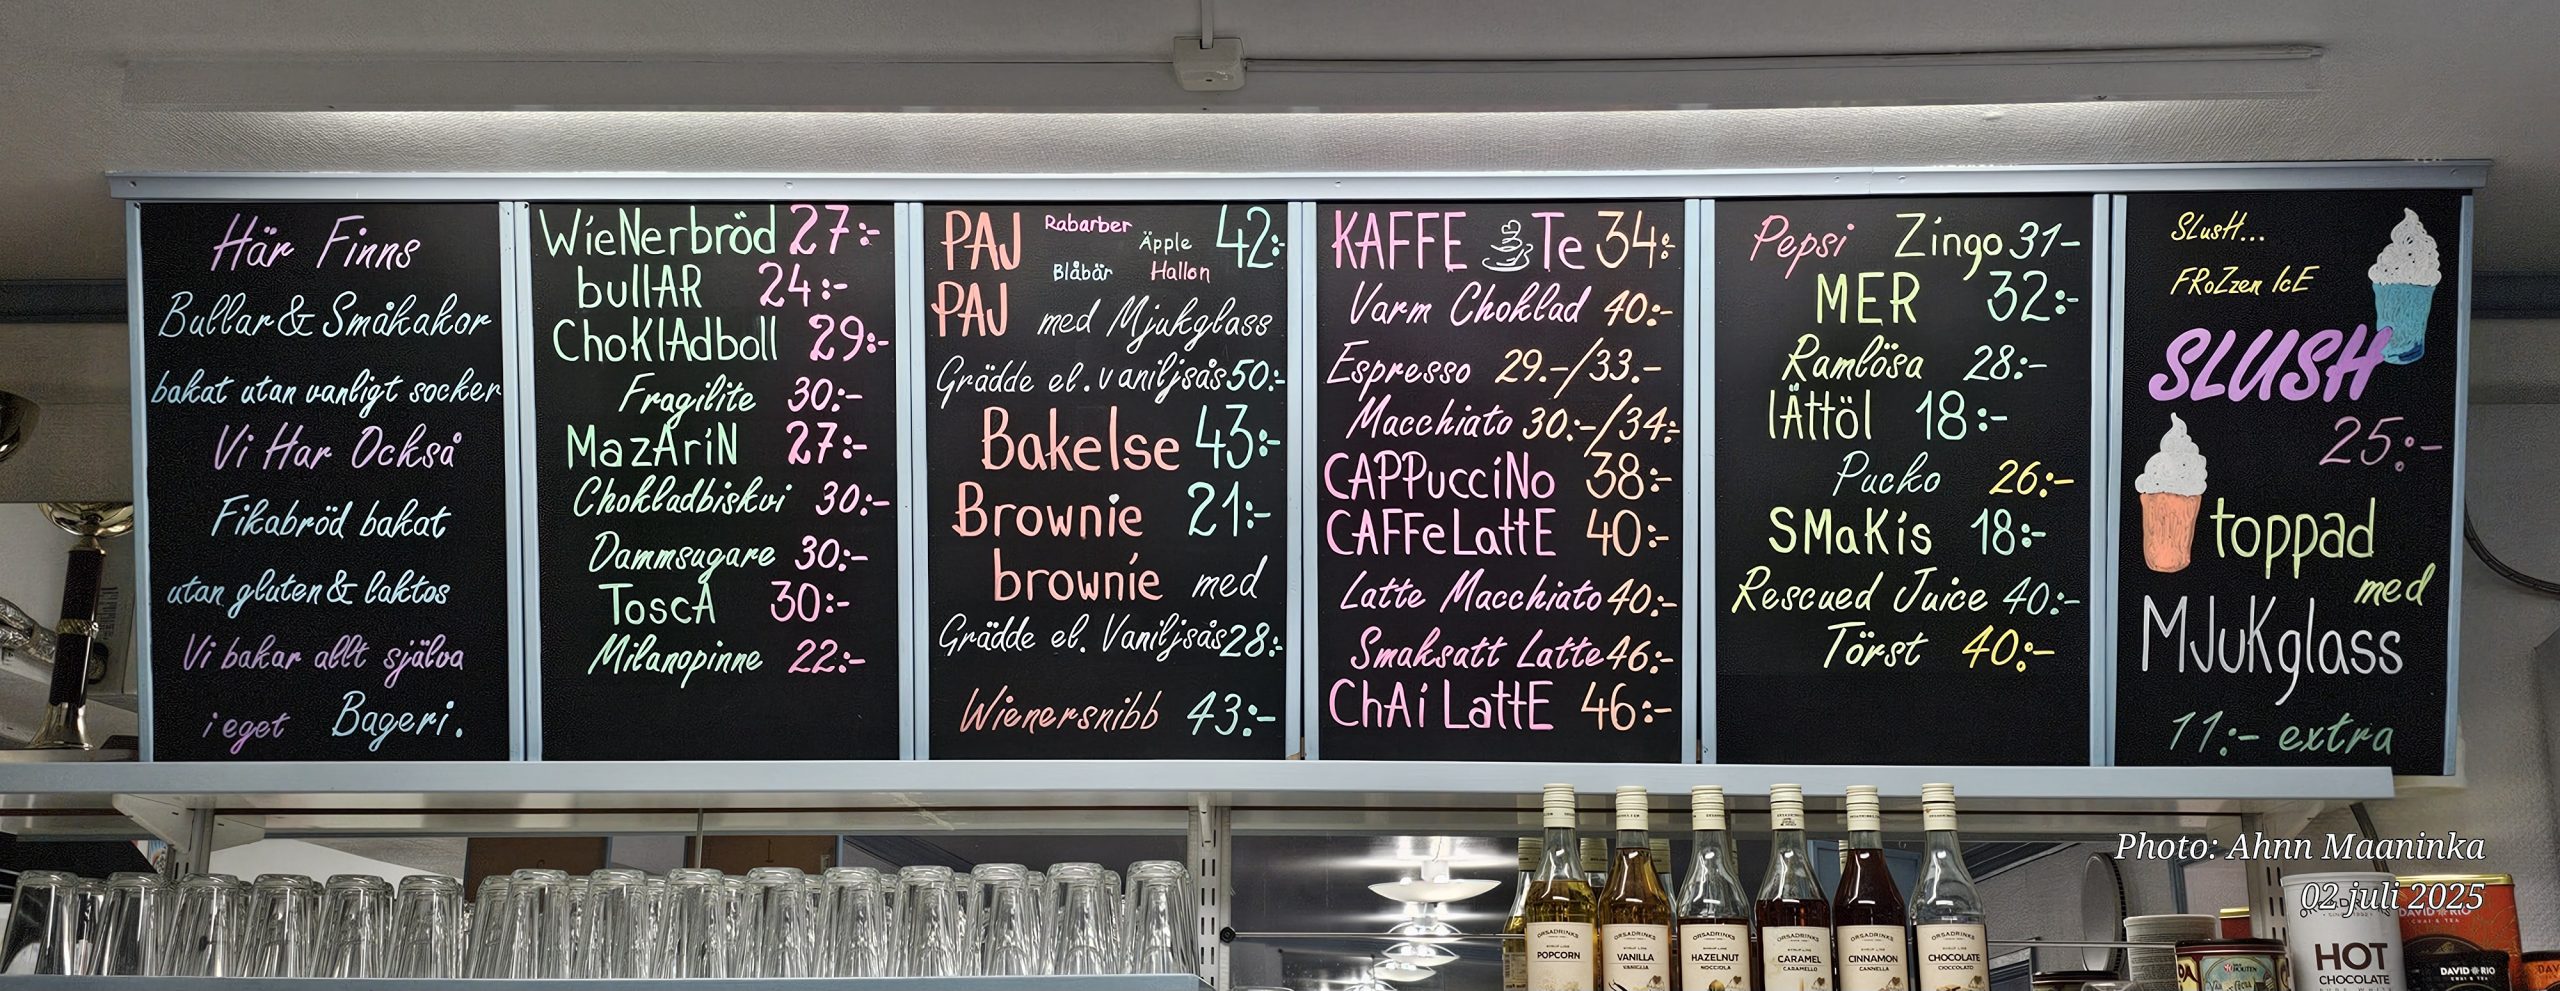 Här Finns
Bullar & Småkakor
bakat utan vanligt socker
Vi Har Också
Fikabröd bakat
utan gluten & laktos
Vi bakar allt själva
i eget Bageri.
WieNerbröd 27:-
bullAR 24:-
ChoKlAdboll 29:-
Fragilite 30:-
MazAriN 27:-
Chokladbiskvi 30:-
Dammsugare 30:-
ToscA 30:-
Milanopinne 22:-
PAJ Rabarber Äpple 42:-
Blåbär Hallon
PAJ med Mjukglass
Grädde el. vaniljsås 50:-
Bakelse 43:-
Brownie 21:-
brownie med
Grädde el. Vaniljsås 28:-
Wienersnibb 43:-
KAFFE Te 34:-
Varm Choklad 40:-
Espresso 29.-/33.-
Macchiato 30:-/34:-
CAPPucciNo 38:-
CAFFeLattE 40:-
Latte Macchiato 40:-
Smaksatt Latte 46:-
ChAi LattE 46:-
Pepsi Zingo 31-
MER 32:-
Ramlösa 28:-
lÄttöl 18:-
Pucko 26:-
SMaKis 18:-
Rescued Juice 40:-
Törst 40:-
SLusH...
FRoZzen IcE
SLUSH
25:-
toppad
med
MJuKglass
11:- extra
Photo: Ahnn Maaninka
02 juli 2025
ORSADRINKS
POPCORN
ORSADRINKS
VANILLA
VANIGLIA
ORSADRINKS
HAZELNUT
NOCCIOLA
ORSADRINKS
CARAMEL
CARAMELLO
ORSADRINKS
CINNAMON
CANNELLA
ORSADRINKS
CHOCOLATE
CIOCCOLATO
HOT
CHOCOLATE
DAVID RIO
CHAI & TEA
DAVID RIO
CHAI & TEA